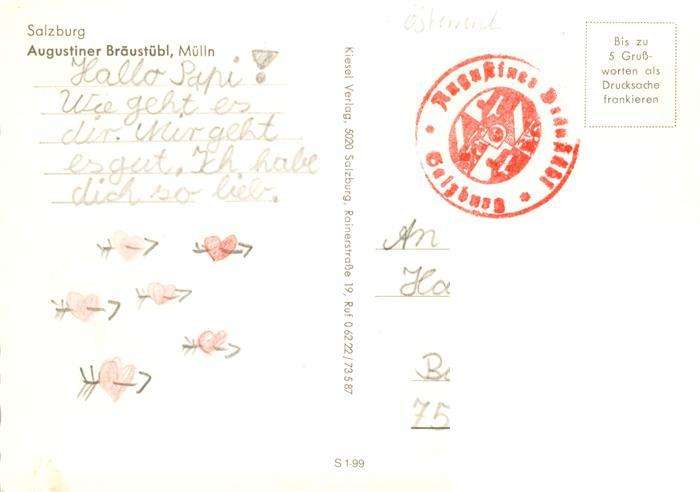 Salzburg
Augustiner Bräustübl, Mülln
Hallo Papi!
Wie geht es
dir. Mir geht
es gut. Ich habe
dich so lieb.
Kiesel Verlag, 5020 Salzburg, Rainerstraße 19, Ruf 0 62 22 / 73 5 87
S 1-99
Österreich
Augustiner Bräustübl
Salzburg
Bis zu
5 Gruß-
worten als
Drucksache
frankieren
An
Ha
Be
75